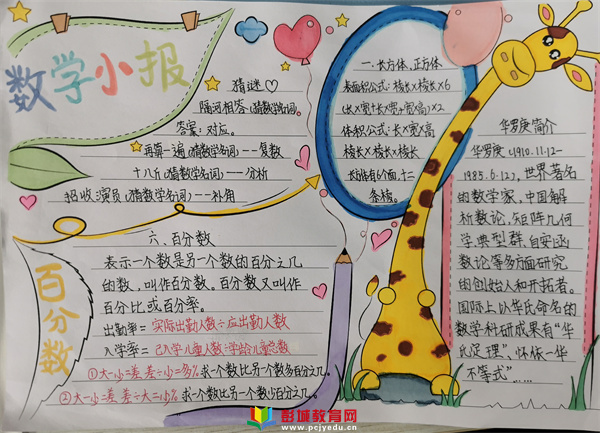 数学小报
猜谜
隔河相答(猜数学名词)
答案:对应。
再算一遍(猜数学名词)——复数
十八斤(猜数学名词)——分析
招收演员(猜数学名词)——补角
一、长方体、正方体
表面积公式:棱长×棱长×6
(长×宽+长×高+宽×高)×2
体积公式:长×宽×高
棱长×棱长×棱长
条棱。
华罗庚简介
华罗庚(1910.11.12-
1985.6.12),世界著名
的数学家,中国解
析数论,矩阵几何
学典型群,自安函
数论等多方面研究
的创始人和开拓者。
国际上以华氏命名的
数学科研成果有“华
氏定理”,怀依一华
不等式”……
百分数
六、百分数
表示一个数是另一个数的百分之几
的数,叫作百分数。百分数又叫作
百分比或百分率。
出勤率=实际出勤人数÷应出勤人数
入学率=已入学儿童人数÷学龄儿童总数
①大-小=差 差÷小=多% 求一个数比另一个数多百分之几。
②大-小=差 差÷大=小% 求一个数比另一个数少百分之几。
彭城教育网
www.pcjyedu.cn